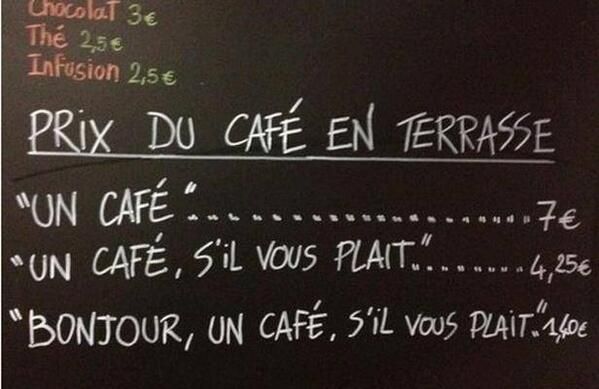 Chocolat 3€
Thé 2,5€
Infusion 2,5€
PRIX DU CAFÉ EN TERRASSE
"UN CAFÉ"........................7€
"UN CAFÉ, S'IL VOUS PLAIT."..........4,25€
"BONJOUR, UN CAFÉ, S'IL VOUS PLAIT."1,40€